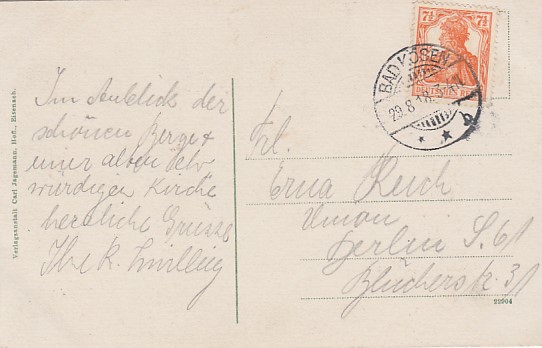 Verlagsanstalt Carl Jagemann, Hofl., Eisenach.
Im Anblick der
schönen Berge +
einer alten ehr
würdigen Kirche
herzliche Grüsse
Ihre K.
7½ 7½
DEUTSCHES REICH
BAD KÖSEN
29.8.18.
Frl.
Erna Reich
Berlin S. 61
Blücherstr. 31
22004